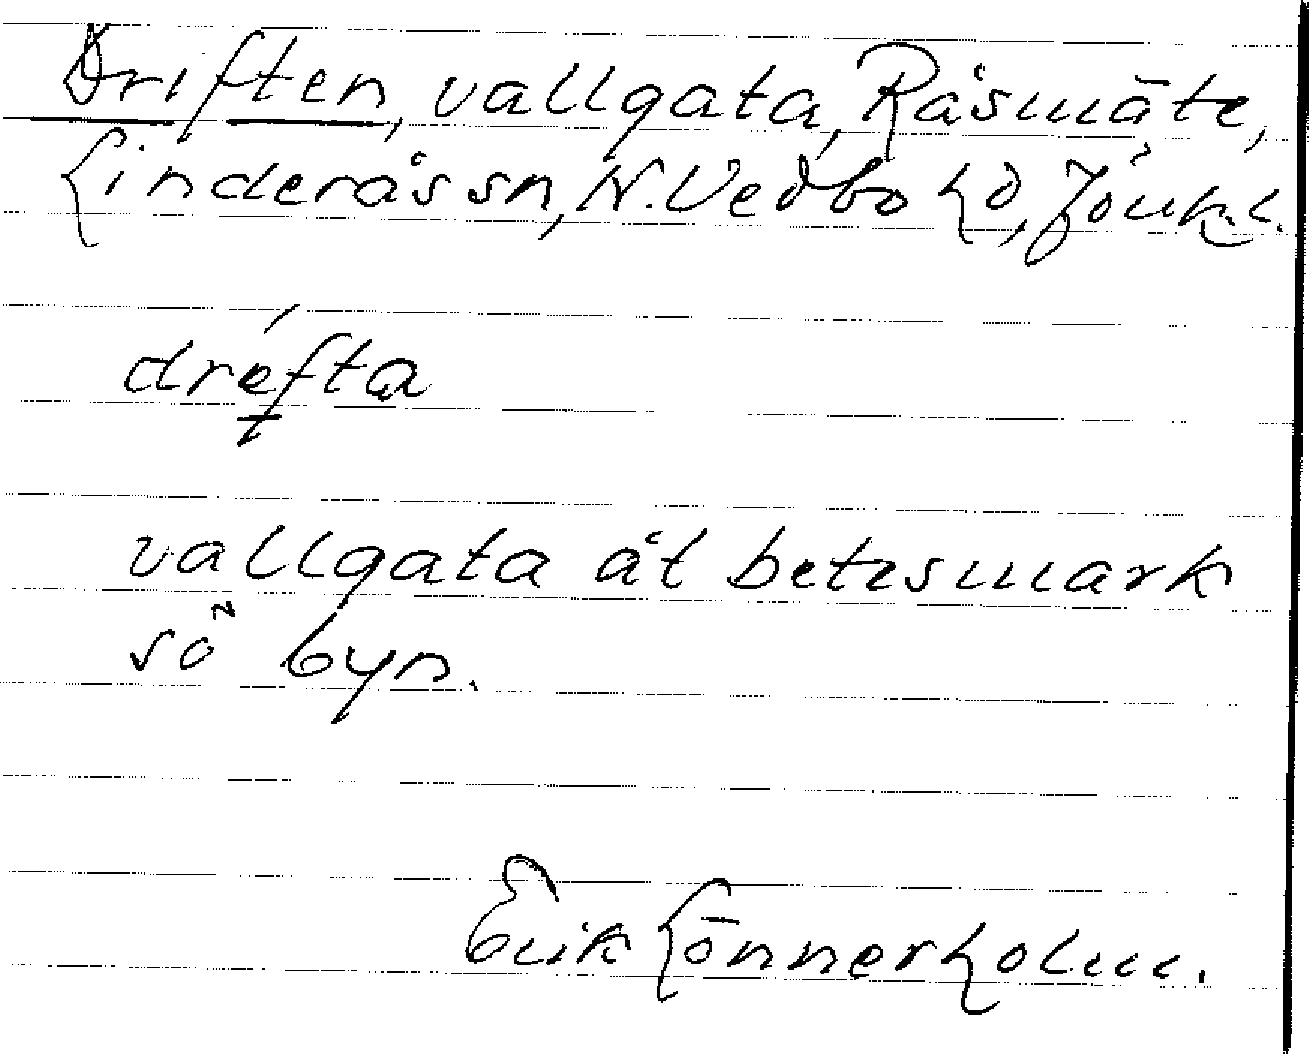 Driften, vallgata, Råsmäte,
Linderås sn, N. Vedbo hd, Jönk. l.
dréfta
vallgata åt betesmark
sö byn.
Erik Lönnerholm.